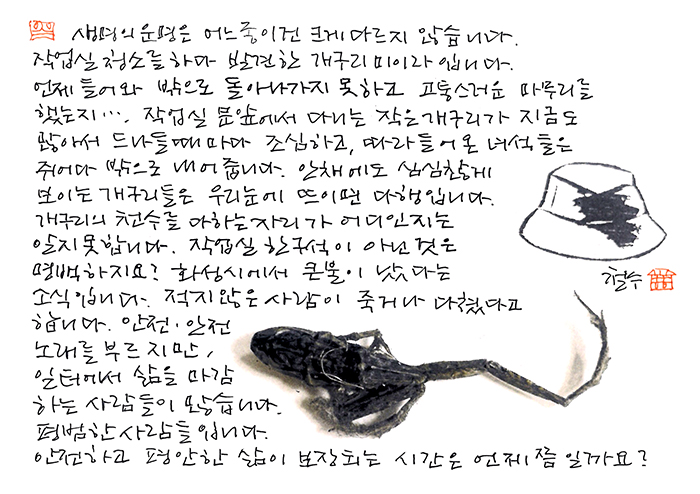 생명의 운명은 어느 종이건 크게 다르지 않습니다.
작업실 청소를 하다 발견한 개구리 미이라입니다.
언제 들어와 밖으로 돌아나가지 못하고 고통스러운 마무리를
했는지…. 작업실 문앞에서 다니는 작은 개구리가 지금도
많아서 드나들때마다 조심하고, 따라 들어온 녀석들은
쥐어다 밖으로 내어 줍니다. 안채에도 심심찮게
보이는 개구리들은 우리눈에 뜨이면 다행입니다.
개구리의 천수를 다하는 자리가 어디인지는
알지 못합니다. 작업실 한구석이 아닌 것은
명백하지요? 화성시에서 큰불이 났다는
소식입니다. 적지않은 사람이 죽거나 다쳤다고
합니다. 안전·안전
노래를 부르지만,
일터에서 삶을 마감
하는 사람들이 많습니다.
평범한 사람들입니다.
안전하고 평안한 삶이 보장되는 시간은 언제쯤일까요?
철수